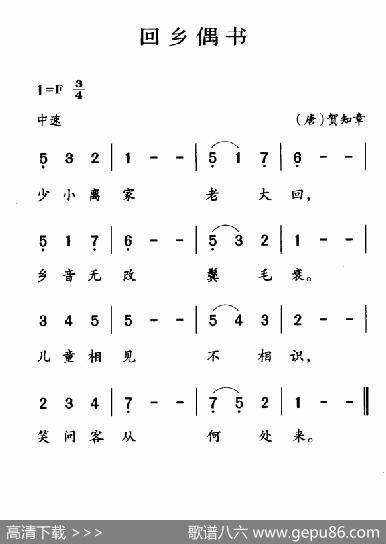 回乡偶书
1=F 3/4
中速 (唐)贺知章
5 3 2 | 1 - - | 5 1 7 | 6 - - |
少小离家 老大回,
5 1 7 | 6 - - | 5 3 2 | 1 - - |
乡音无改 鬓毛衰。
3 4 5 | 5 - - | 5 4 3 | 2 - - |
儿童相见 不相识,
2 3 4 | 7 - - | 7 5 2 | 1 - - ‖
笑问客从 何处来。
高清下载 >>> 歌谱八六 www.gepu86.com